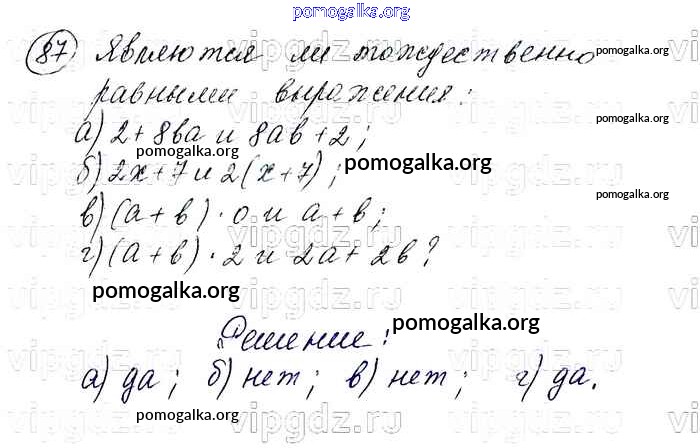 pomogalka.org
87 Являются ли тождественно
pomogalka.org
равными выражения:
pomogalka.org
а) 2 + 8ва и 8ав + 2;
pomogalka.org
б) 2х + 7 и 2(х + 7);
pomogalka.org
pomogalka.org
в) (а + в) · 0 и а + в;
г) (а + в) · 2 и 2а + 2в?
pomogalka.org
pomogalka.org
Решение:
pomogalka.org
а) да; б) нет; в) нет; г) да.
pomogalka.org
pomogalka.org
vipgdz.ru